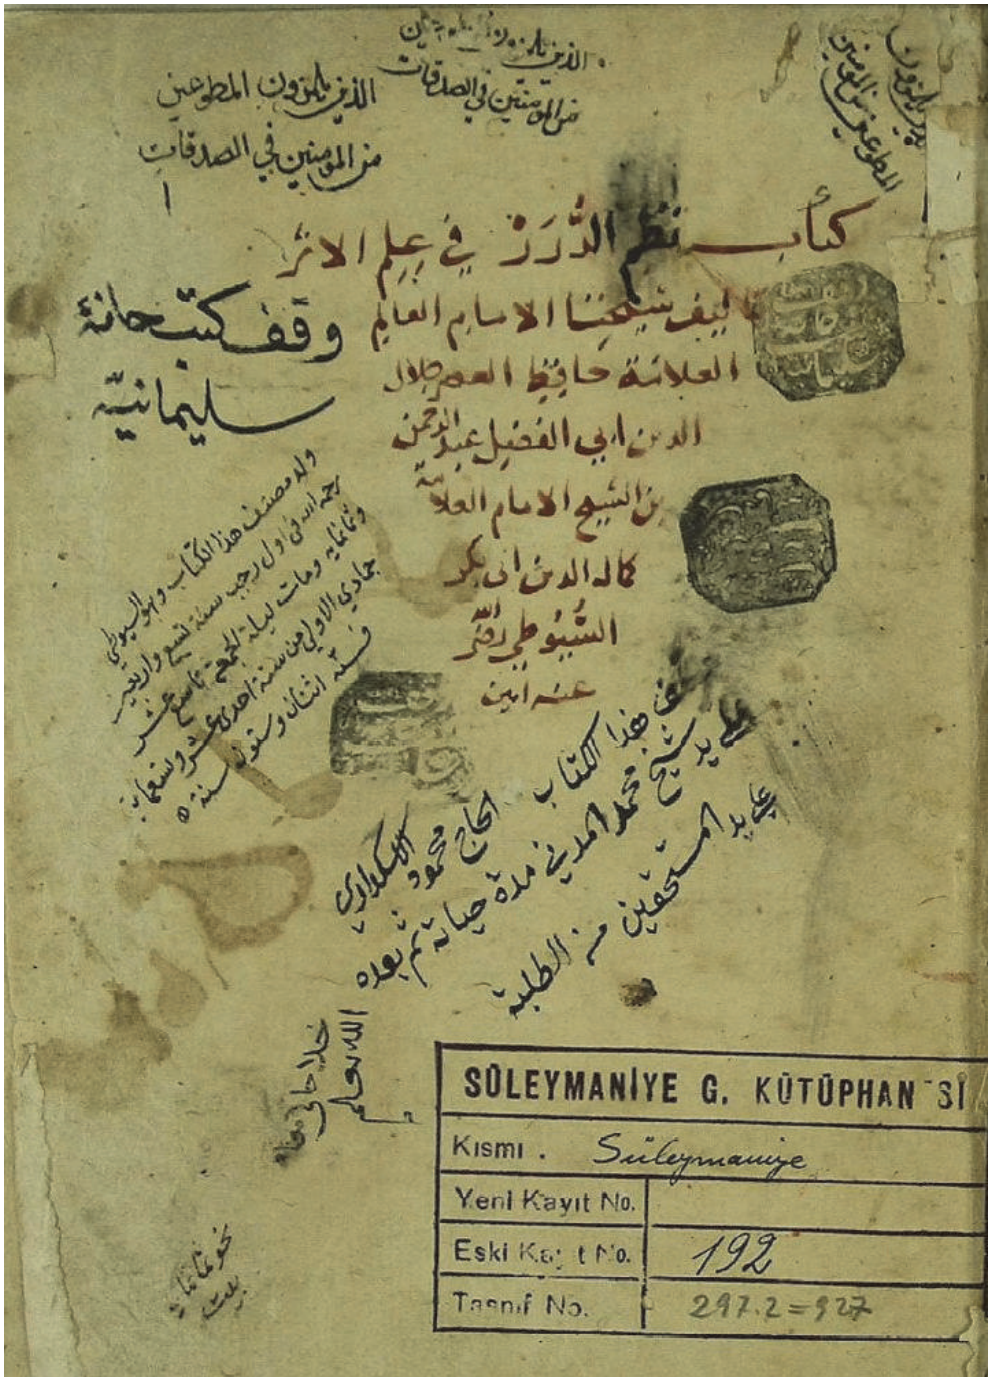 الذين يلمزون
المطوعين من المؤمنين
الذين يلمزون
من المؤمنين في الصدقات
الذين يلمزون المطوعين
من المؤمنين في الصدقات
كتاب نظم الدُّرَرْ في عِلم الاثر
تاليف شيخنا الامام العالم
العلامة حافظ العصر جلال
الدين ابي الفضل عبد الرحمن
بن الشيخ الامام العلامة
كمال الدين ابى بكر
السُّيُوطي رضي الله
عنه امين
وقف كتبخانهٔ
سليمانيّه
ولد مصنف هذا الكتاب وهو السيوطي
رحمه الله في اول رجب سنة تسع واربعين
وثمانمايه ومات ليلة الجمعة تاسع عشر
جمادي الاولي من سنة احدى عشر وتسعماية
فسنه اثنتان وستون سنة
وقف هذا الكتاب الحاج محمود الاسكداري
على يد شيخ محمد المدني مدة حياته ثم بعده
على يد المستحقين من الطلبة
الله يعلم
نحو ثمانمايه
بيت
SÜLEYMANİYE G. KÜTÜPHANESİ
Kısmı . Süleymaniye
Yeni Kayıt No.
Eski Kayıt No. 192
Tasnif No. 297.2=927